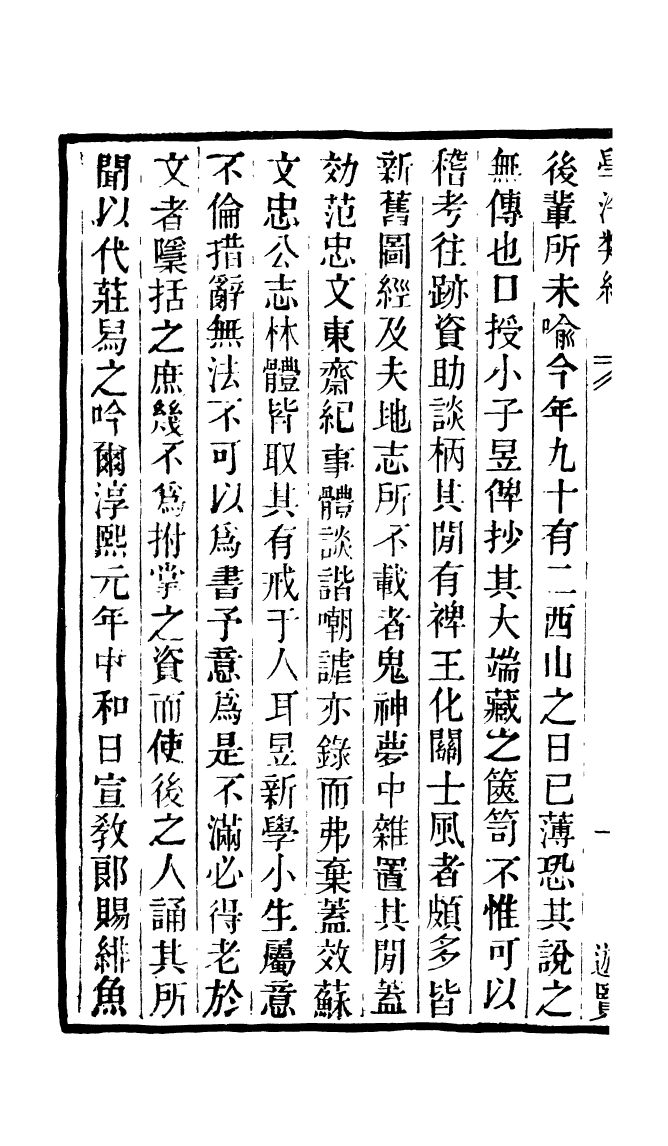 後輩所未喻今年九十有二西山之日已薄恐其說之
無傳也口授小子昱俾抄其大端藏之篋笥不惟可以
稽考往跡資助談柄其閒有裨王化關士風者頗多皆
新舊圖經及夫地志所不載者鬼神夢中雜置其閒蓋
効范忠文東齋紀事體談諧嘲謔亦錄而弗棄蓋效蘇
文忠公志林體皆取其有戒于人耳昱新學小生屬意
不倫措辭無法不可以爲書予意爲是不滿必得老於
文者櫽括之庶幾不爲拊掌之資而使後之人誦其所
聞以代莊舄之吟爾淳熙元年中和日宣敎郞賜緋魚